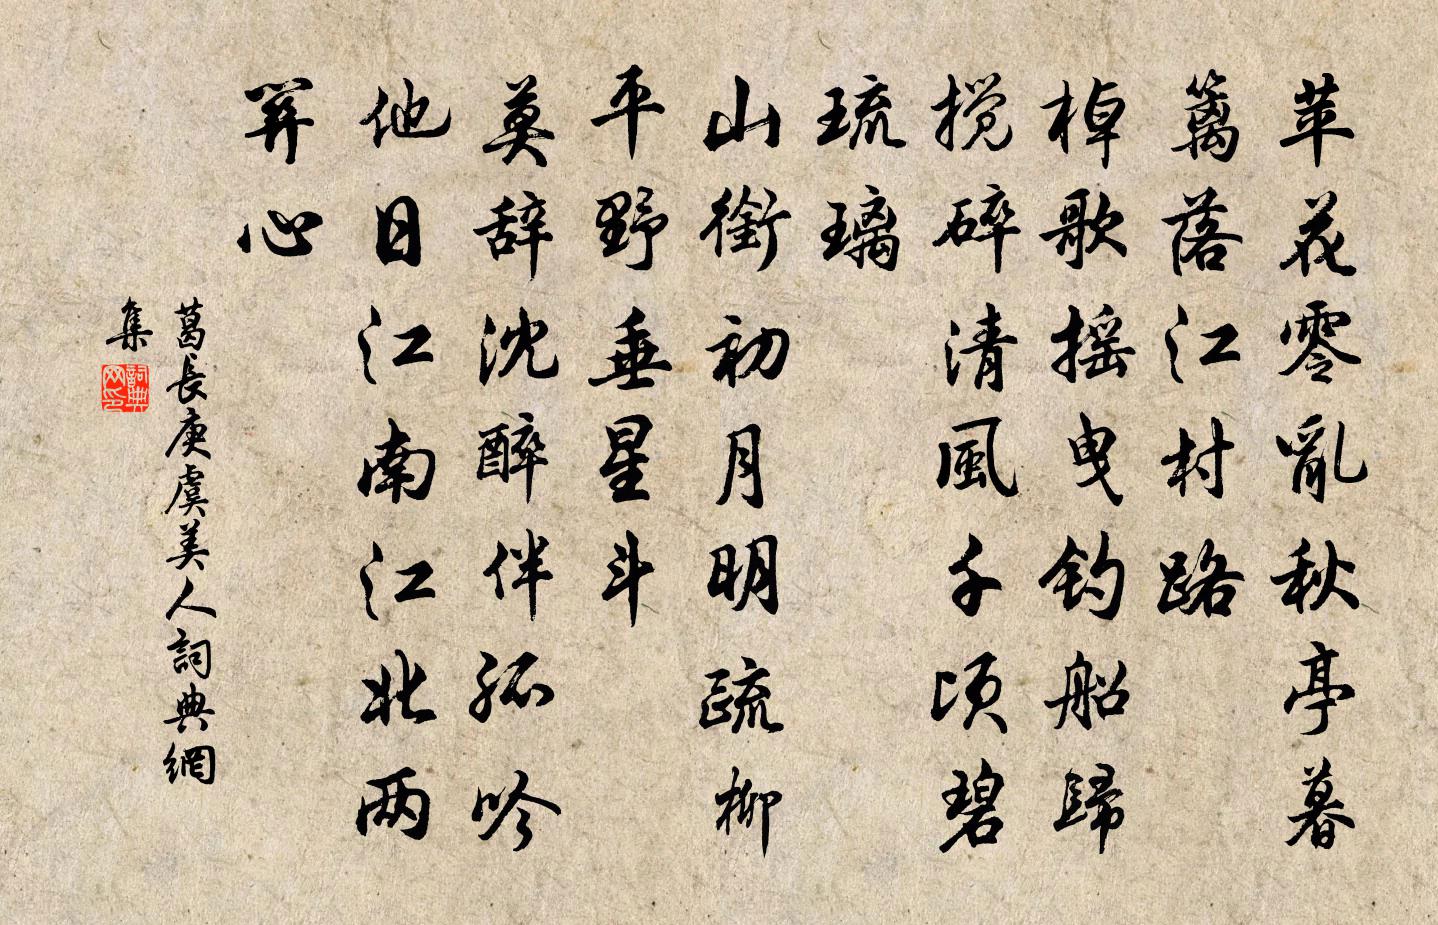 苹花零亂秋亭暮
篱落江村路
棹歌摇曳钓船歸
搅碎清風千顷碧
琉璃
山銜初月明疏柳
平野垂星斗
莫辞沈醉伴孤吟
他日江南江北两
關心
葛長庚虞美人詞典網
集
詞典
网印